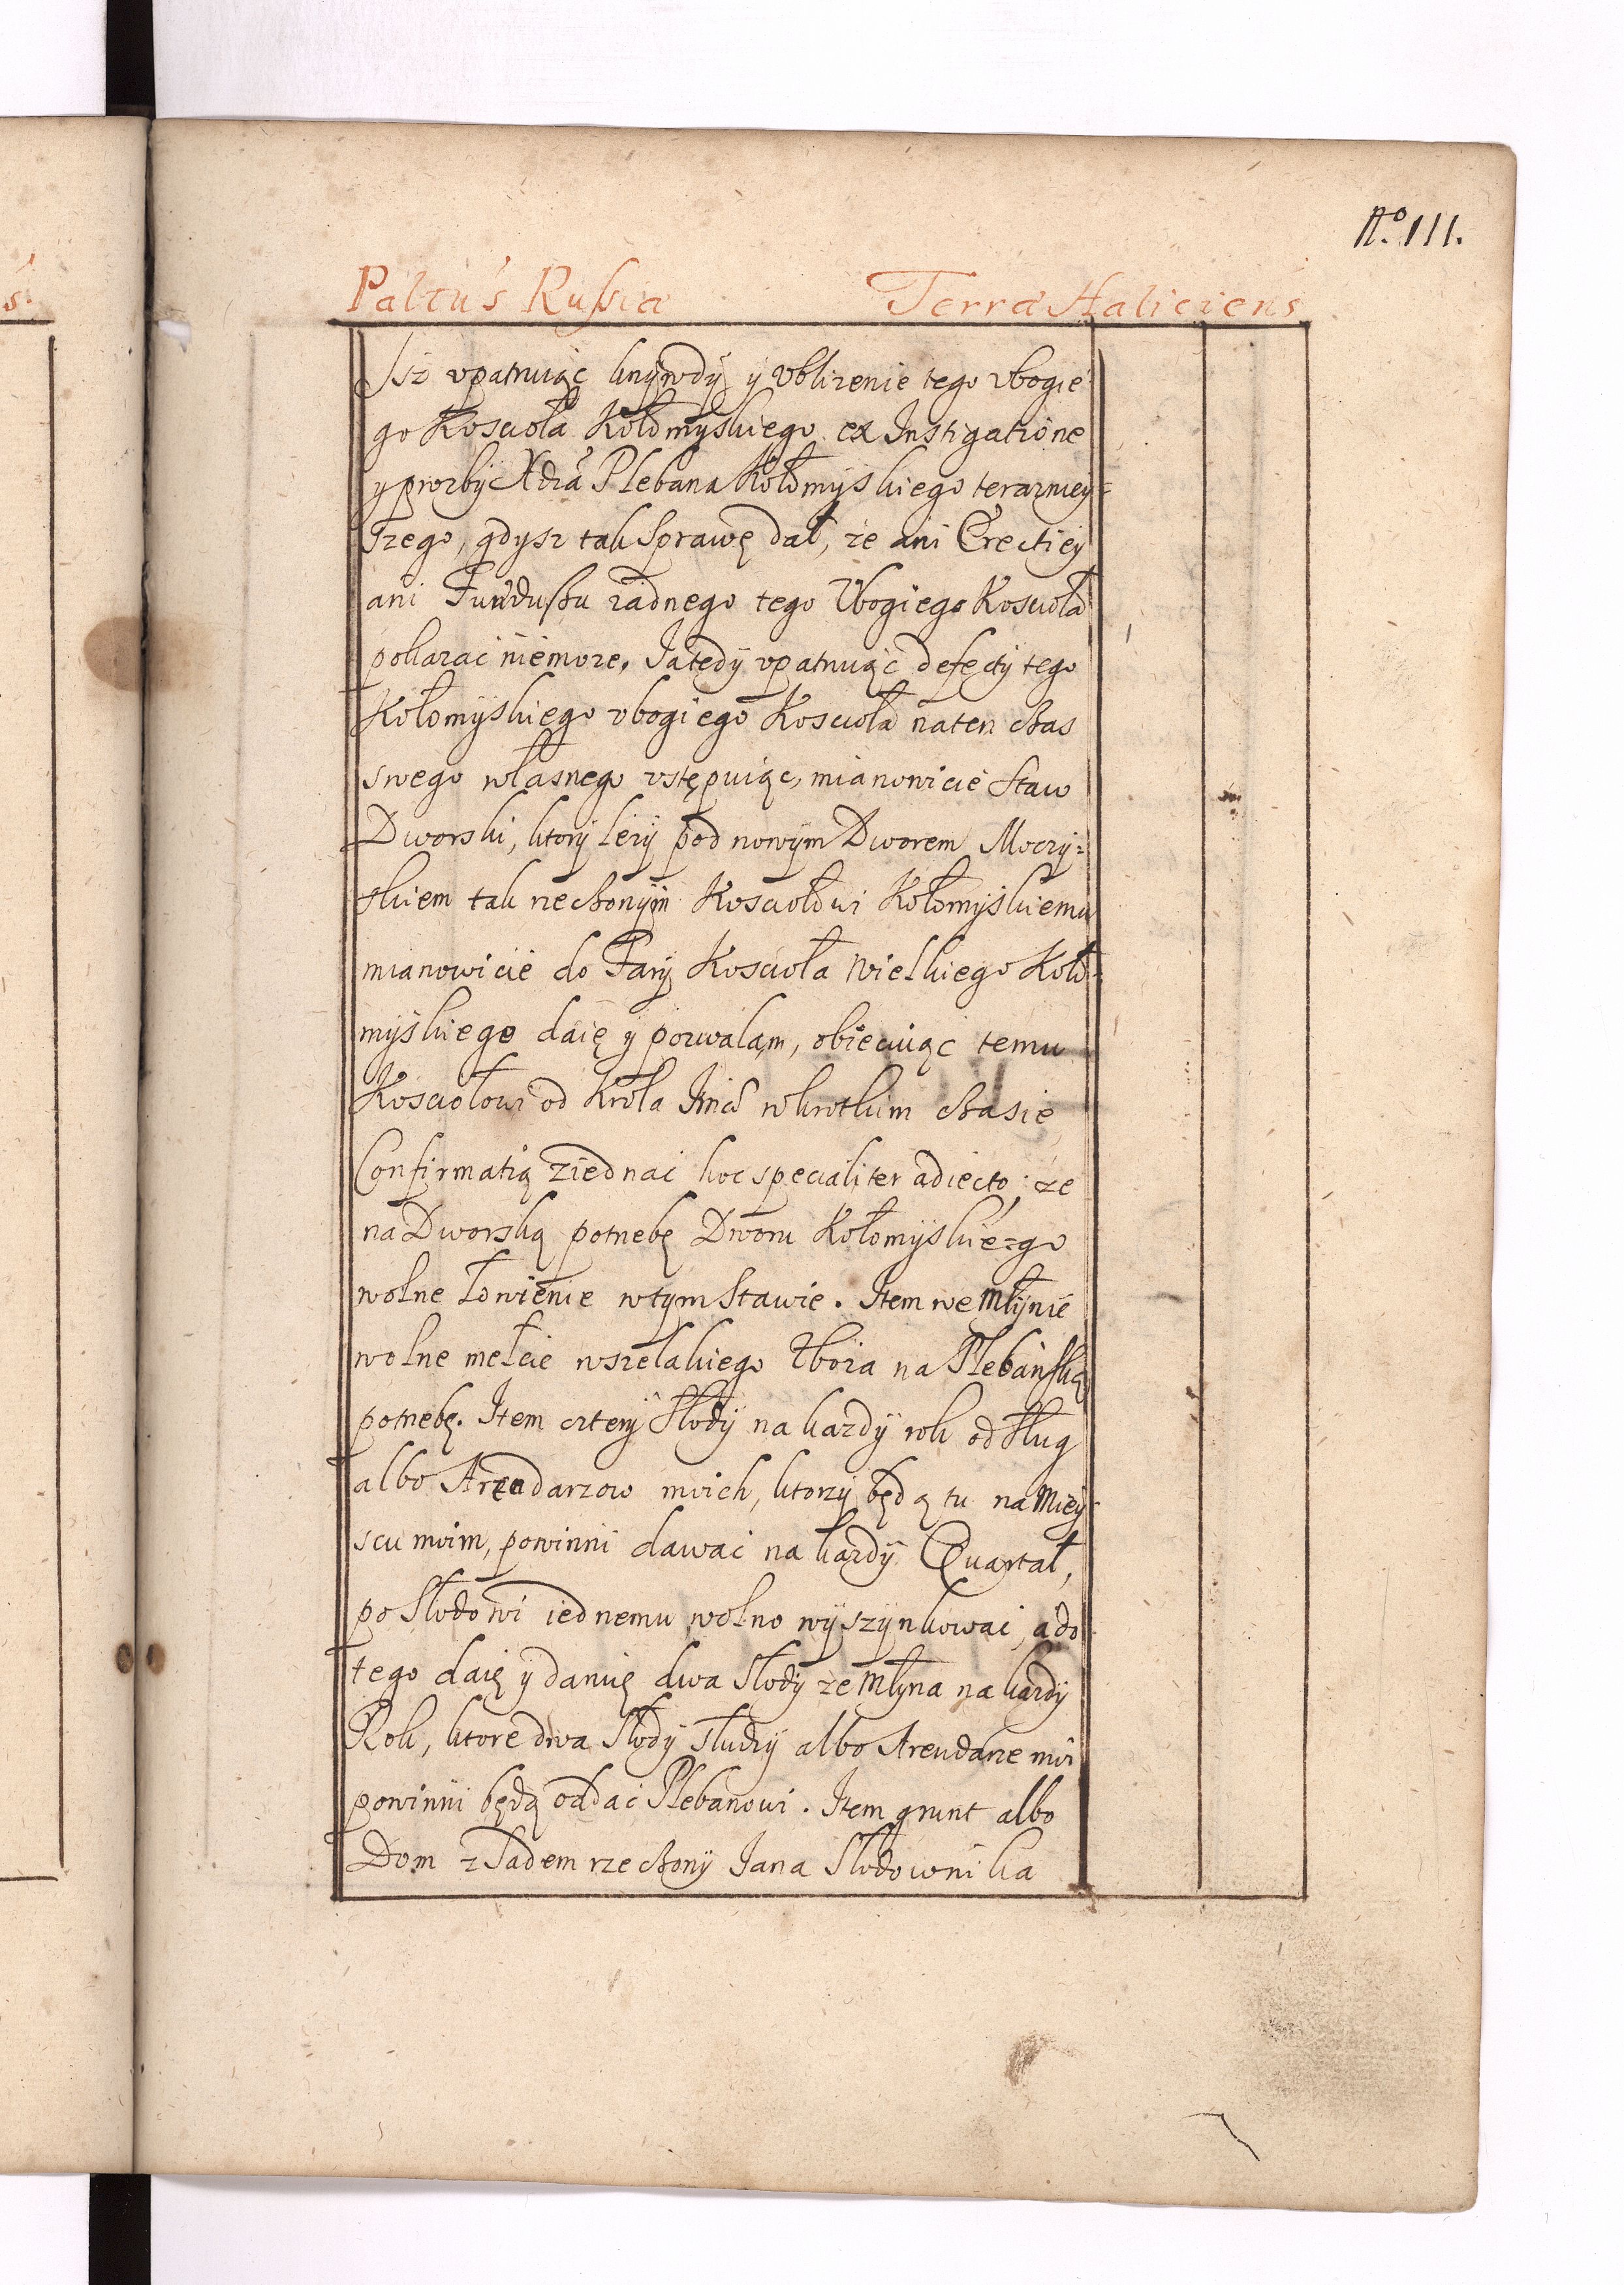 No. 111.
Paltus Russia Terra Haliciens
Isz vpatruiąc krzywdÿ y vblizenie tego vbogie
go Kosciołá Kołomyskiego ex Instigatione
y prozbÿ Xdzá Plebana Kołomyskiego terazniey=
szego, gdysz tak Sprawę dał, ze ani Erectiey
ani Funduszu zadnego tego Vbogiego Kosciołá
pokazac niemoze. Ja tedÿ vpatruiąc defectÿ tego
Kołomyskiego vbogiego Kosciołá na ten czas
swego własnego vstępuiąc, mianowicie Staw
Dworski, ktorÿ lezÿ pod nowÿm Dworem Moczÿ=
skiem tak rzeczonÿm Kosciołowi Kołomÿskiemu
mianowicie do Farÿ Kosciołá Wielkiego Koło=
mÿskiego daię y pozwalam, obiecuiąc temu
Kosciołowi od Krola Jmci wkrotkim czasie
Confirmatią ziednac hoc specialiter adiecto; ze
na Dworską potrzebę Dworu Kołomÿskie=go
wolne Łowienie wtym Stawie. Item we Młÿnie
wolne melcie wszelakiego Zboza na Plebanską
potrzebę. Item czterÿ Słodÿ na kazdÿ rok od sług
albo Arendarzow moich, ktorzÿ będą tu na Miey=
scu moim, powinni dawac na kazdÿ Quartał,
po Słodowi iednemu wolno wÿszÿnkowac, a do
tego daię y daruię dwa Słodÿ ze Młyna na kazdÿ
Rok, ktore dwa Słodÿ słudzÿ albo Arendarze moi
powinni będą oddac Plebanowi. Item grunt albo
Dom z Sadem rzeczonÿ Jana Słodownika